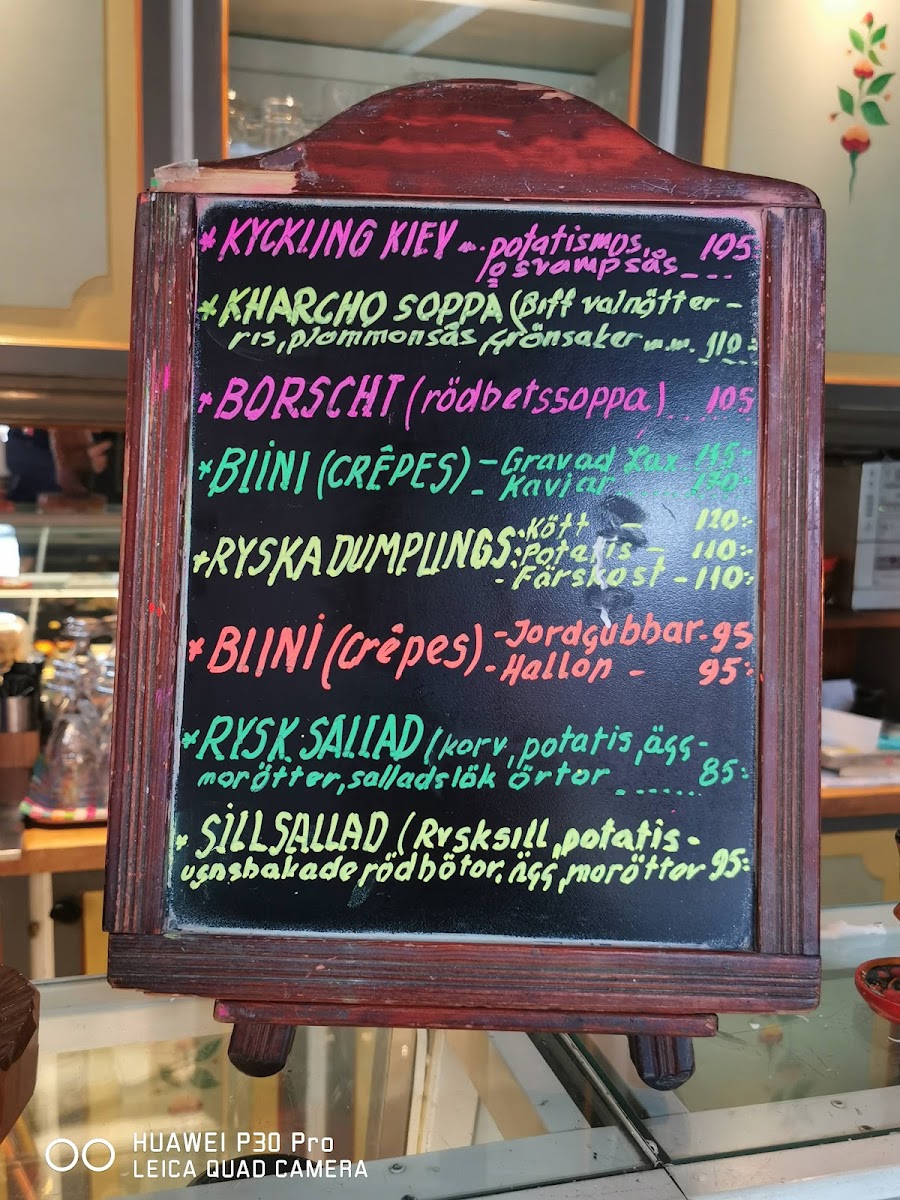 * KYCKLING KIEV m. potatismos, 105
o svampsås
* KHARCHO SOPPA (Biff valnötter -
ris, plommonsås, grönsaker m.m. 110:-
* BORSCHT (rödbetssoppa) 105
* BLINI (CRÊPES) - Gravad Lax
- Kaviar 170:-
* RYSKA DUMPLINGS: - Kött - 120:-
- Potatis - 110:-
- Färskost - 110:-
* BLINI (crêpes) - Jordgubbar - 95
- Hallon - 95:-
* RYSK SALLAD (korv, potatis, ägg -
morötter, salladslök örtor 85:-
* SILLSALLAD (Rysksill, potatis -
ugnsbakade rödbötor, ägg, morötter 95:-
HUAWEI P30 Pro
LEICA QUAD CAMERA